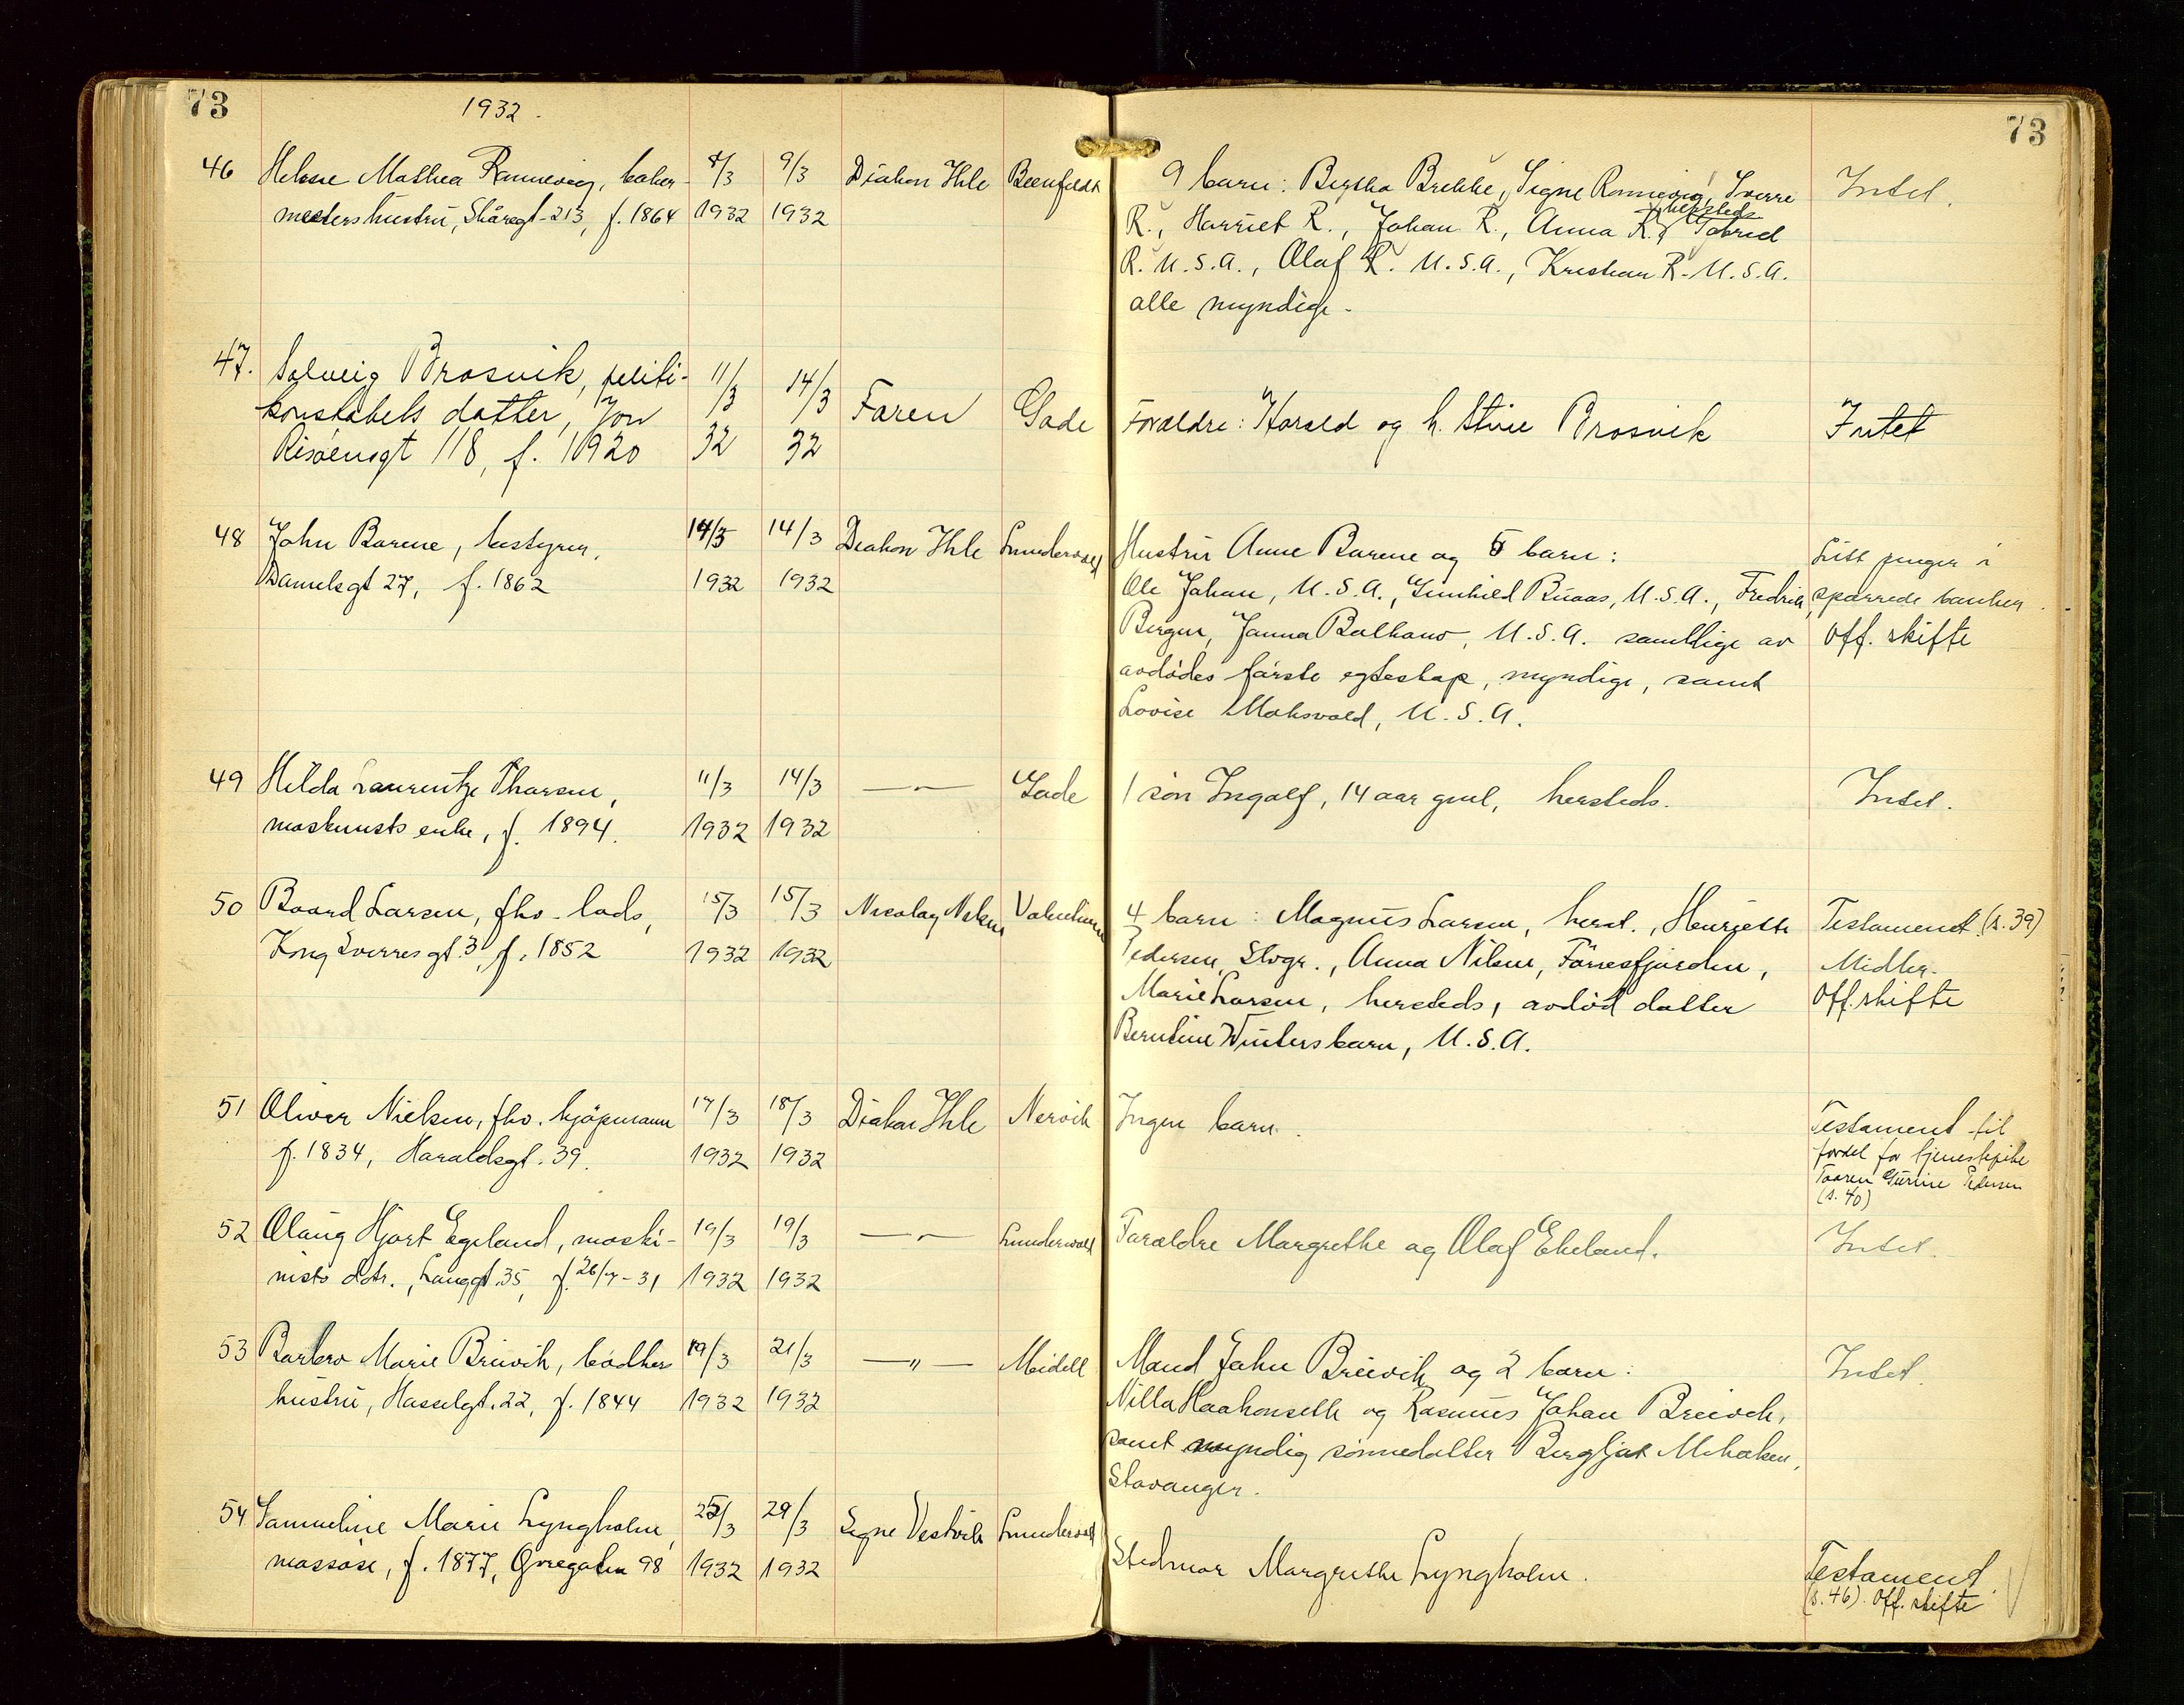 73
1932.
73
46 Helene Mathea Rannevig, baker- 8/3 9/3 Diakon Ihle
mesters hustru, Skåregt-213, f. 1864 1932 1932
9 barn: Bertha Brekke, Signe Rannevig, Sverre Intet.
hersteds
R., Harriet R., Johan R., Anna R.,
R. U.S.A., Olaf R. U.S.A., Kristian R. U.S.A.
alle myndige.
47. Solveig Brosvik, politi- 11/3 14/3
konstabels datter, Jon Faren Gade
Risøensgt 118, f. 1920 32 32
Foraldre: Harald og h. Stine Brosvik Intet
48 John Barene, bestyrer, 14/3 14/3 Diakon Ihle Lundervold
Danielsgt 27, f. 1862 1932 1932
Hustru Anne Barene og 5 barn: Litt penger i
Ole Johan, U.S.A., Gunhild Buaas, U.S.A., Fredrik sparrede banker.
Birger, Janna U.S.A. samtlige av Off. skifte
avdødes første egteskap, myndige, samt
Lovise U.S.A.
49 Hilda Laurentze Tharsen, 11/3 14/3 — " — Gade
maskinists enke, f. 1894. 1932 1932
1 søn Ingolf, 14 aar gml, hersteds. Intet.
50 Baard Larsen, fhv. lods, 15/3 15/3 Nicolay Nilsen
Kong Sverres gt. 3, f. 1852 1932 1932
4 barn: Magnus Larsen, herst., Henriette Testament (s. 39)
Pedersen, Stvgr., Anna Nilsen, Førresfjorden, Midler.
Marie Larsen, hersteds, avdød datter Off. skifte
Berntine Winters barn, U.S.A.
51 Oliver Nielsen, fhv. kjøpmann 17/3 18/3 Diakon Ihle Nervik
f. 1834, Haraldsgt. 39. 1932 1932
Ingen barn. Testament til
fordel for tjenestepike
Gurine Pedersen
(s. 40)
52 Olaug Hjort Egeland, maski- 19/3 19/3 — " — Lundervold
nists dtr., Langgt. 35, f. 26/7-31 1932 1932
Foraldre Margrethe og Olaf Ekeland. Intet.
53 Barbro Marie Breivik, bødker 19/3 21/3 — " — Meidell
hustru, Hasselgt. 22, f. 1844 1932 1932
Mand John Breivik og 2 barn: Intet.
Nilla Haakonseth og Rasmus Johan Breivik,
samt myndig sønnedatter Bergljot
Stavanger.
54 Samueline Marie Lyngholm, 25/3 29/3 Signe Vestvik Lundervold
massøse, f. 1877, 98 1932 1932
Stedmor Margrethe Lyngholm. Testament.
(s. 46). Off. skifte